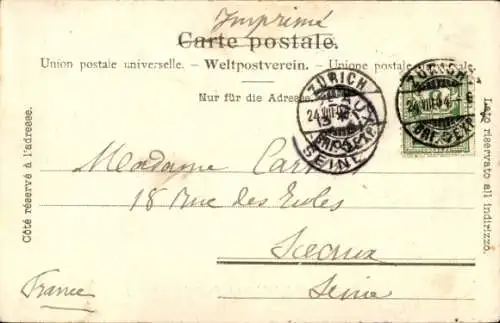 Imprimé
Carte postale.
Union postale universelle. - Weltpostverein. - Unione postale
Nur für die Adresse.
ZÜRICH
24.VIII.04
BRF. EXP.
SEINE
ZÜRICH
24.VIII.04
BRF. EXP.
Côté réservé à l'adresse.
Lato riservato all indirizzo.
Madame
18 rue des
Sceaux
Seine
France